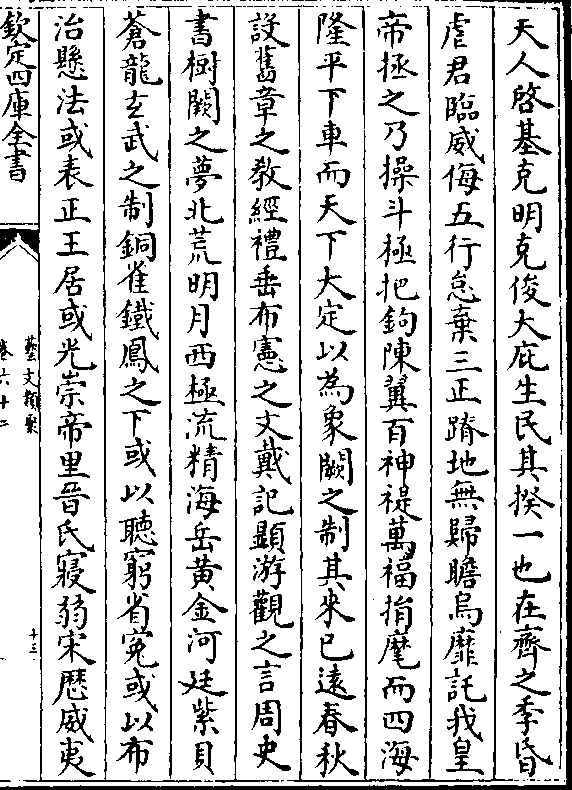 天人啓基克明克俊大庇生民其揆一也在齊之季昏
虐君臨威侮五行怠棄三正蹐地無歸瞻烏靡託我皇
帝拯之乃操斗極把鉤陳翼百神禔萬福指麾而四海
隆平下車而天下大定以為象闕之制其來已遠春秋
設舊章之教經禮垂布憲之文戴記顯游觀之言周史
書樹闕之夢北荒明月西極流精海岳黄金河廷紫貝
蒼龍玄武之制銅雀鐵鳳之下或以聽窮省寃或以布
治懸法或表正王居或光崇帝里晉氏寖弱宋歷威夷
欽定四庫全書
藝文類聚
卷六十二
十三